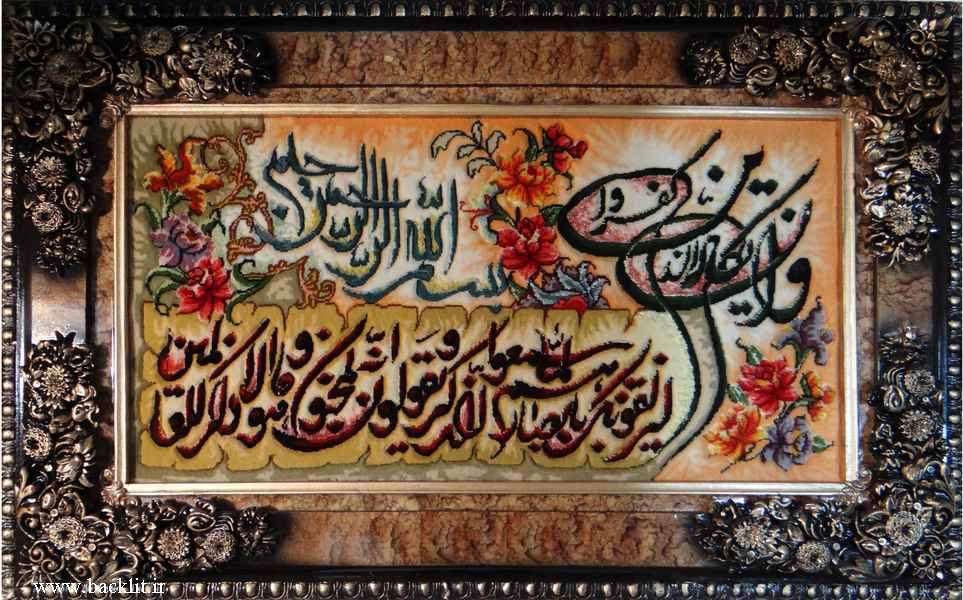 بسم الله الرحمن الرحیم
وان یکاد الذین کفروا
لیزلقونک بابصارهم لما سمعوا الذکر و یقولون انه لمجنون و ما هو الا ذکر للعالمین
www.backlit.ir